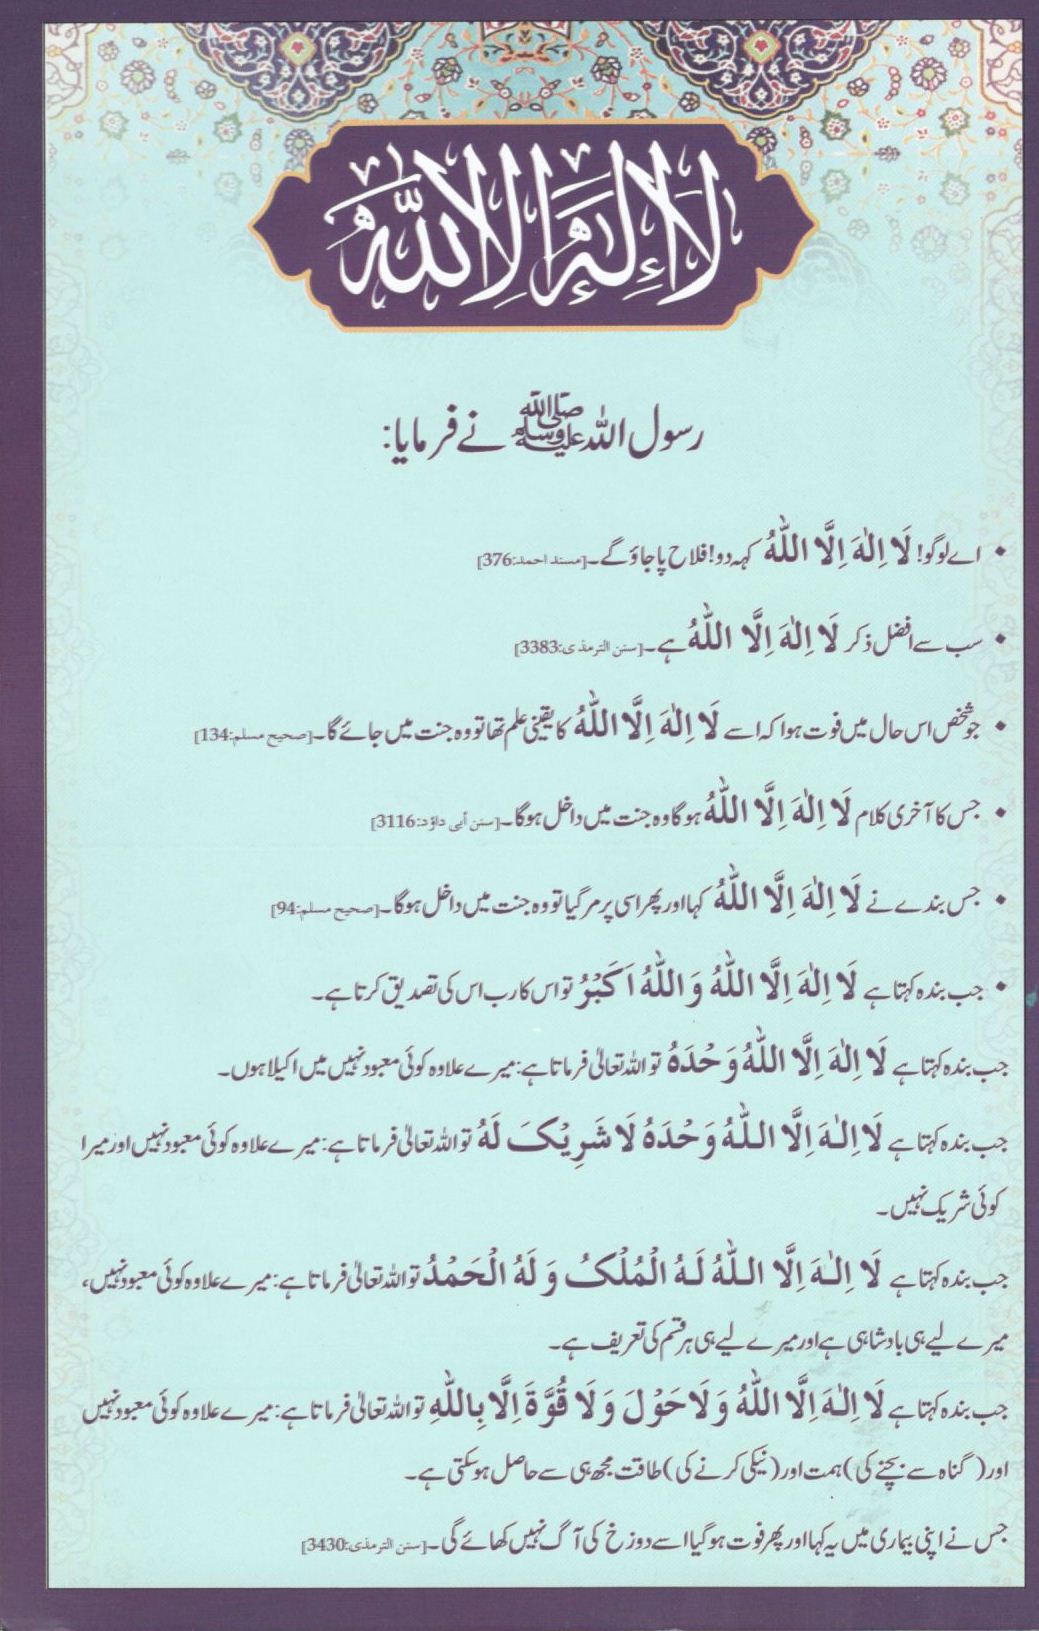 لا إله إلا الله
رسول اللہ ﷺ نے فرمایا:
• اے لوگو! لَا اِلٰهَ اِلَّا اللّٰهُ کہہ دو! فلاح پا جاؤ گے۔ [مسند احمد:376]
• سب سے افضل ذکر لَا اِلٰهَ اِلَّا اللّٰهُ ہے۔ [سنن الترمذی:3383]
• جو شخص اس حال میں فوت ہوا کہ اسے لَا اِلٰهَ اِلَّا اللّٰهُ کا یقینی علم تھا تو وہ جنت میں جائے گا۔ [صحیح مسلم:134]
• جس کا آخری کلام لَا اِلٰهَ اِلَّا اللّٰهُ ہوگا وہ جنت میں داخل ہوگا۔ [سنن أبی داؤد:3116]
• جس بندے نے لَا اِلٰهَ اِلَّا اللّٰهُ کہا اور پھر اسی پر مر گیا تو وہ جنت میں داخل ہوگا۔ [صحیح مسلم:94]
• جب بندہ کہتا ہے لَا اِلٰهَ اِلَّا اللّٰهُ وَ اللّٰهُ اَکْبَرُ تو اس کا رب اس کی تصدیق کرتا ہے۔
جب بندہ کہتا ہے لَا اِلٰهَ اِلَّا اللّٰهُ وَحْدَهُ تو اللہ تعالیٰ فرماتا ہے: میرے علاوہ کوئی معبود نہیں میں اکیلا ہوں۔
جب بندہ کہتا ہے لَا اِلٰهَ اِلَّا اللّٰهُ وَحْدَهُ لَا شَرِیْکَ لَهُ تو اللہ تعالیٰ فرماتا ہے: میرے علاوہ کوئی معبود نہیں اور میرا
کوئی شریک نہیں۔
جب بندہ کہتا ہے لَا اِلٰهَ اِلَّا اللّٰهُ لَهُ الْمُلْکُ وَ لَهُ الْحَمْدُ تو اللہ تعالیٰ فرماتا ہے: میرے علاوہ کوئی معبود نہیں،
میرے لیے ہی بادشاہی ہے اور میرے لیے ہی ہر قسم کی تعریف ہے۔
جب بندہ کہتا ہے لَا اِلٰهَ اِلَّا اللّٰهُ وَ لَا حَوْلَ وَ لَا قُوَّةَ اِلَّا بِاللّٰهِ تو اللہ تعالیٰ فرماتا ہے: میرے علاوہ کوئی معبود نہیں
اور (گناہ سے بچنے کی) ہمت اور (نیکی کرنے کی) طاقت مجھ ہی سے حاصل ہو سکتی ہے۔
جس نے اپنی بیماری میں یہ کہا اور پھر فوت ہو گیا اسے دوزخ کی آگ نہیں کھائے گی۔ [سنن الترمذی:3430]